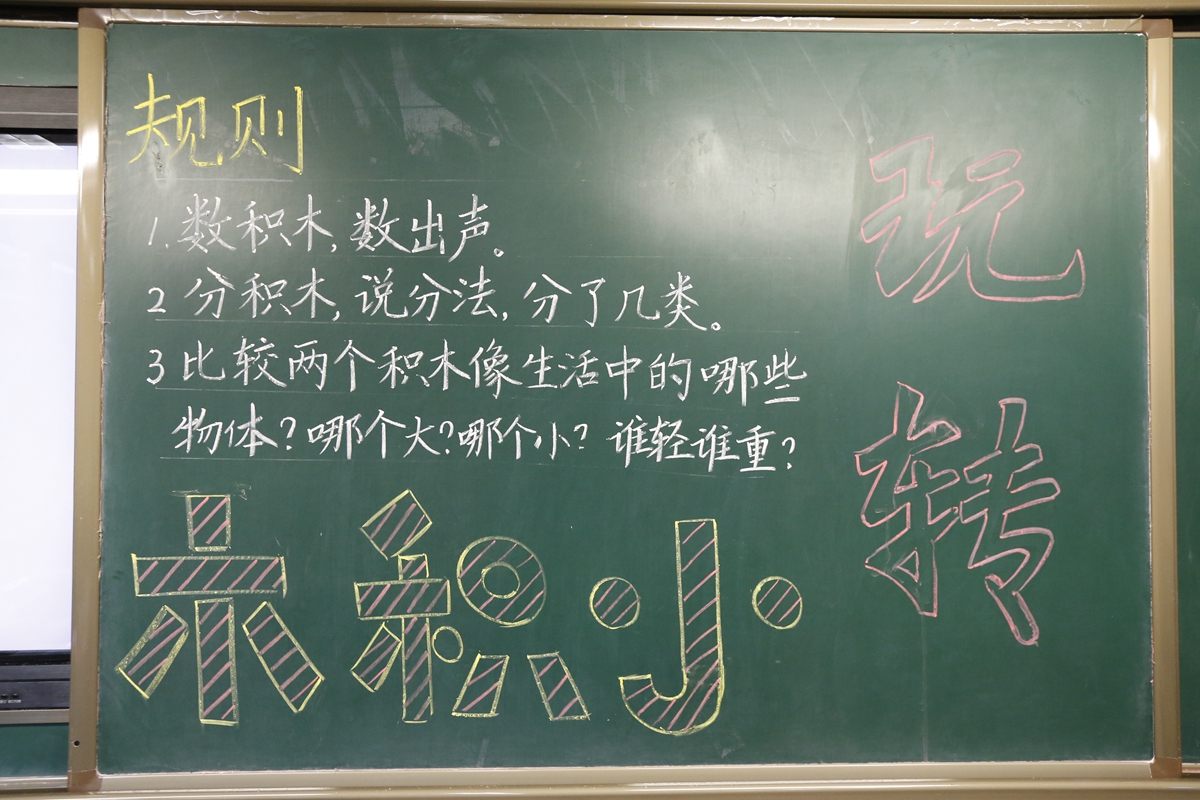 规则
1.数积木,数出声。
2 分积木,说分法,分了几类。
3 比较两个积木像生活中的哪些
物体?哪个大?哪个小?谁轻谁重?
玩
转
木积小